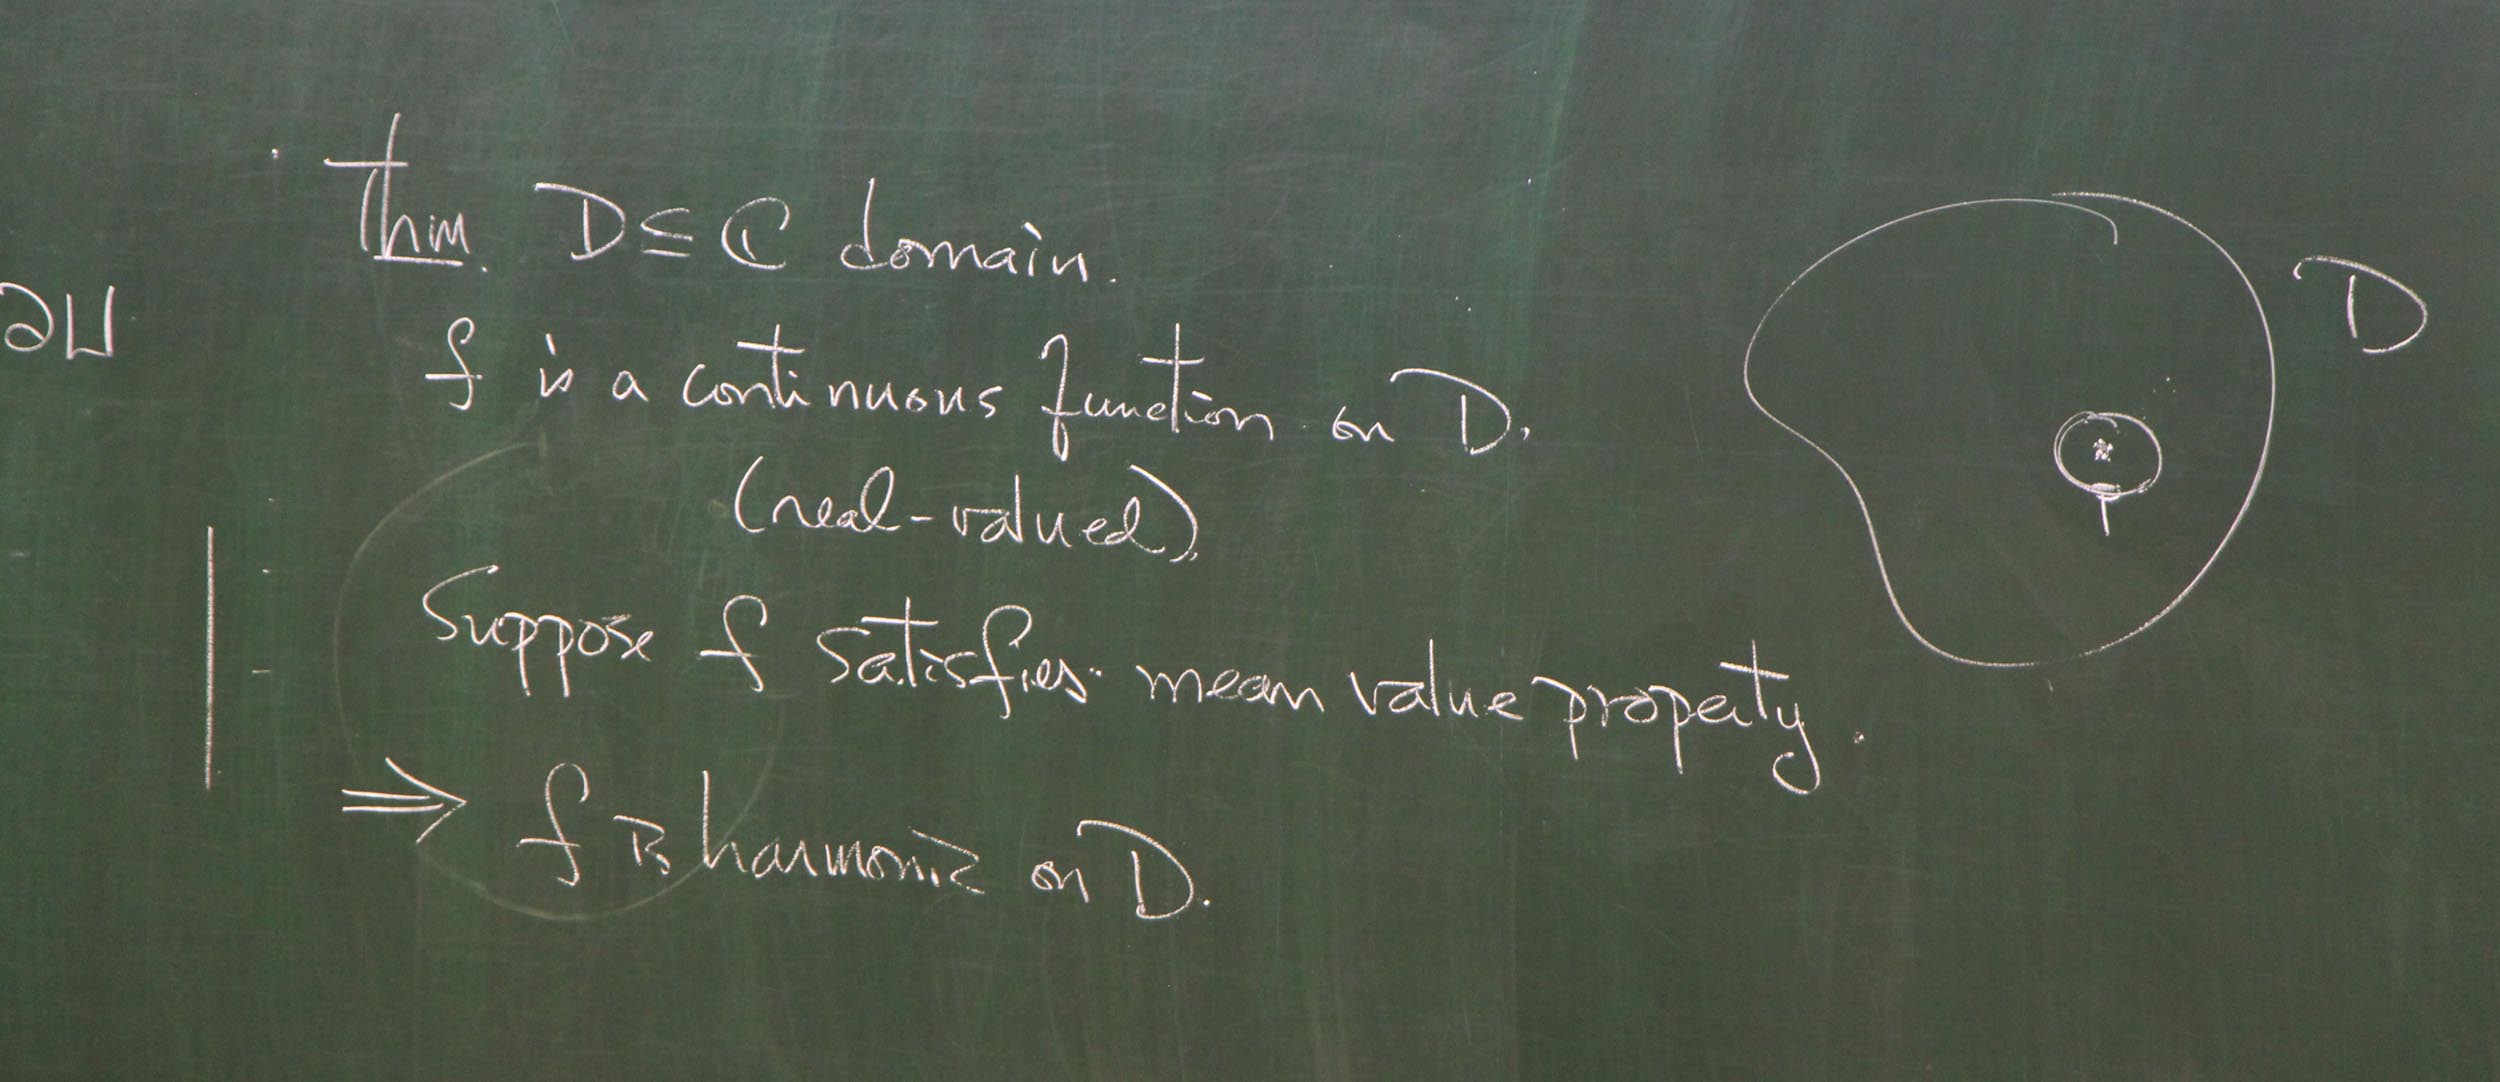 Thm. D ⊆ ℂ domain.
f is a continuous function on D.
(real-valued).
Suppose f satisfies mean value property.
⇒ f is harmonic on D.
D